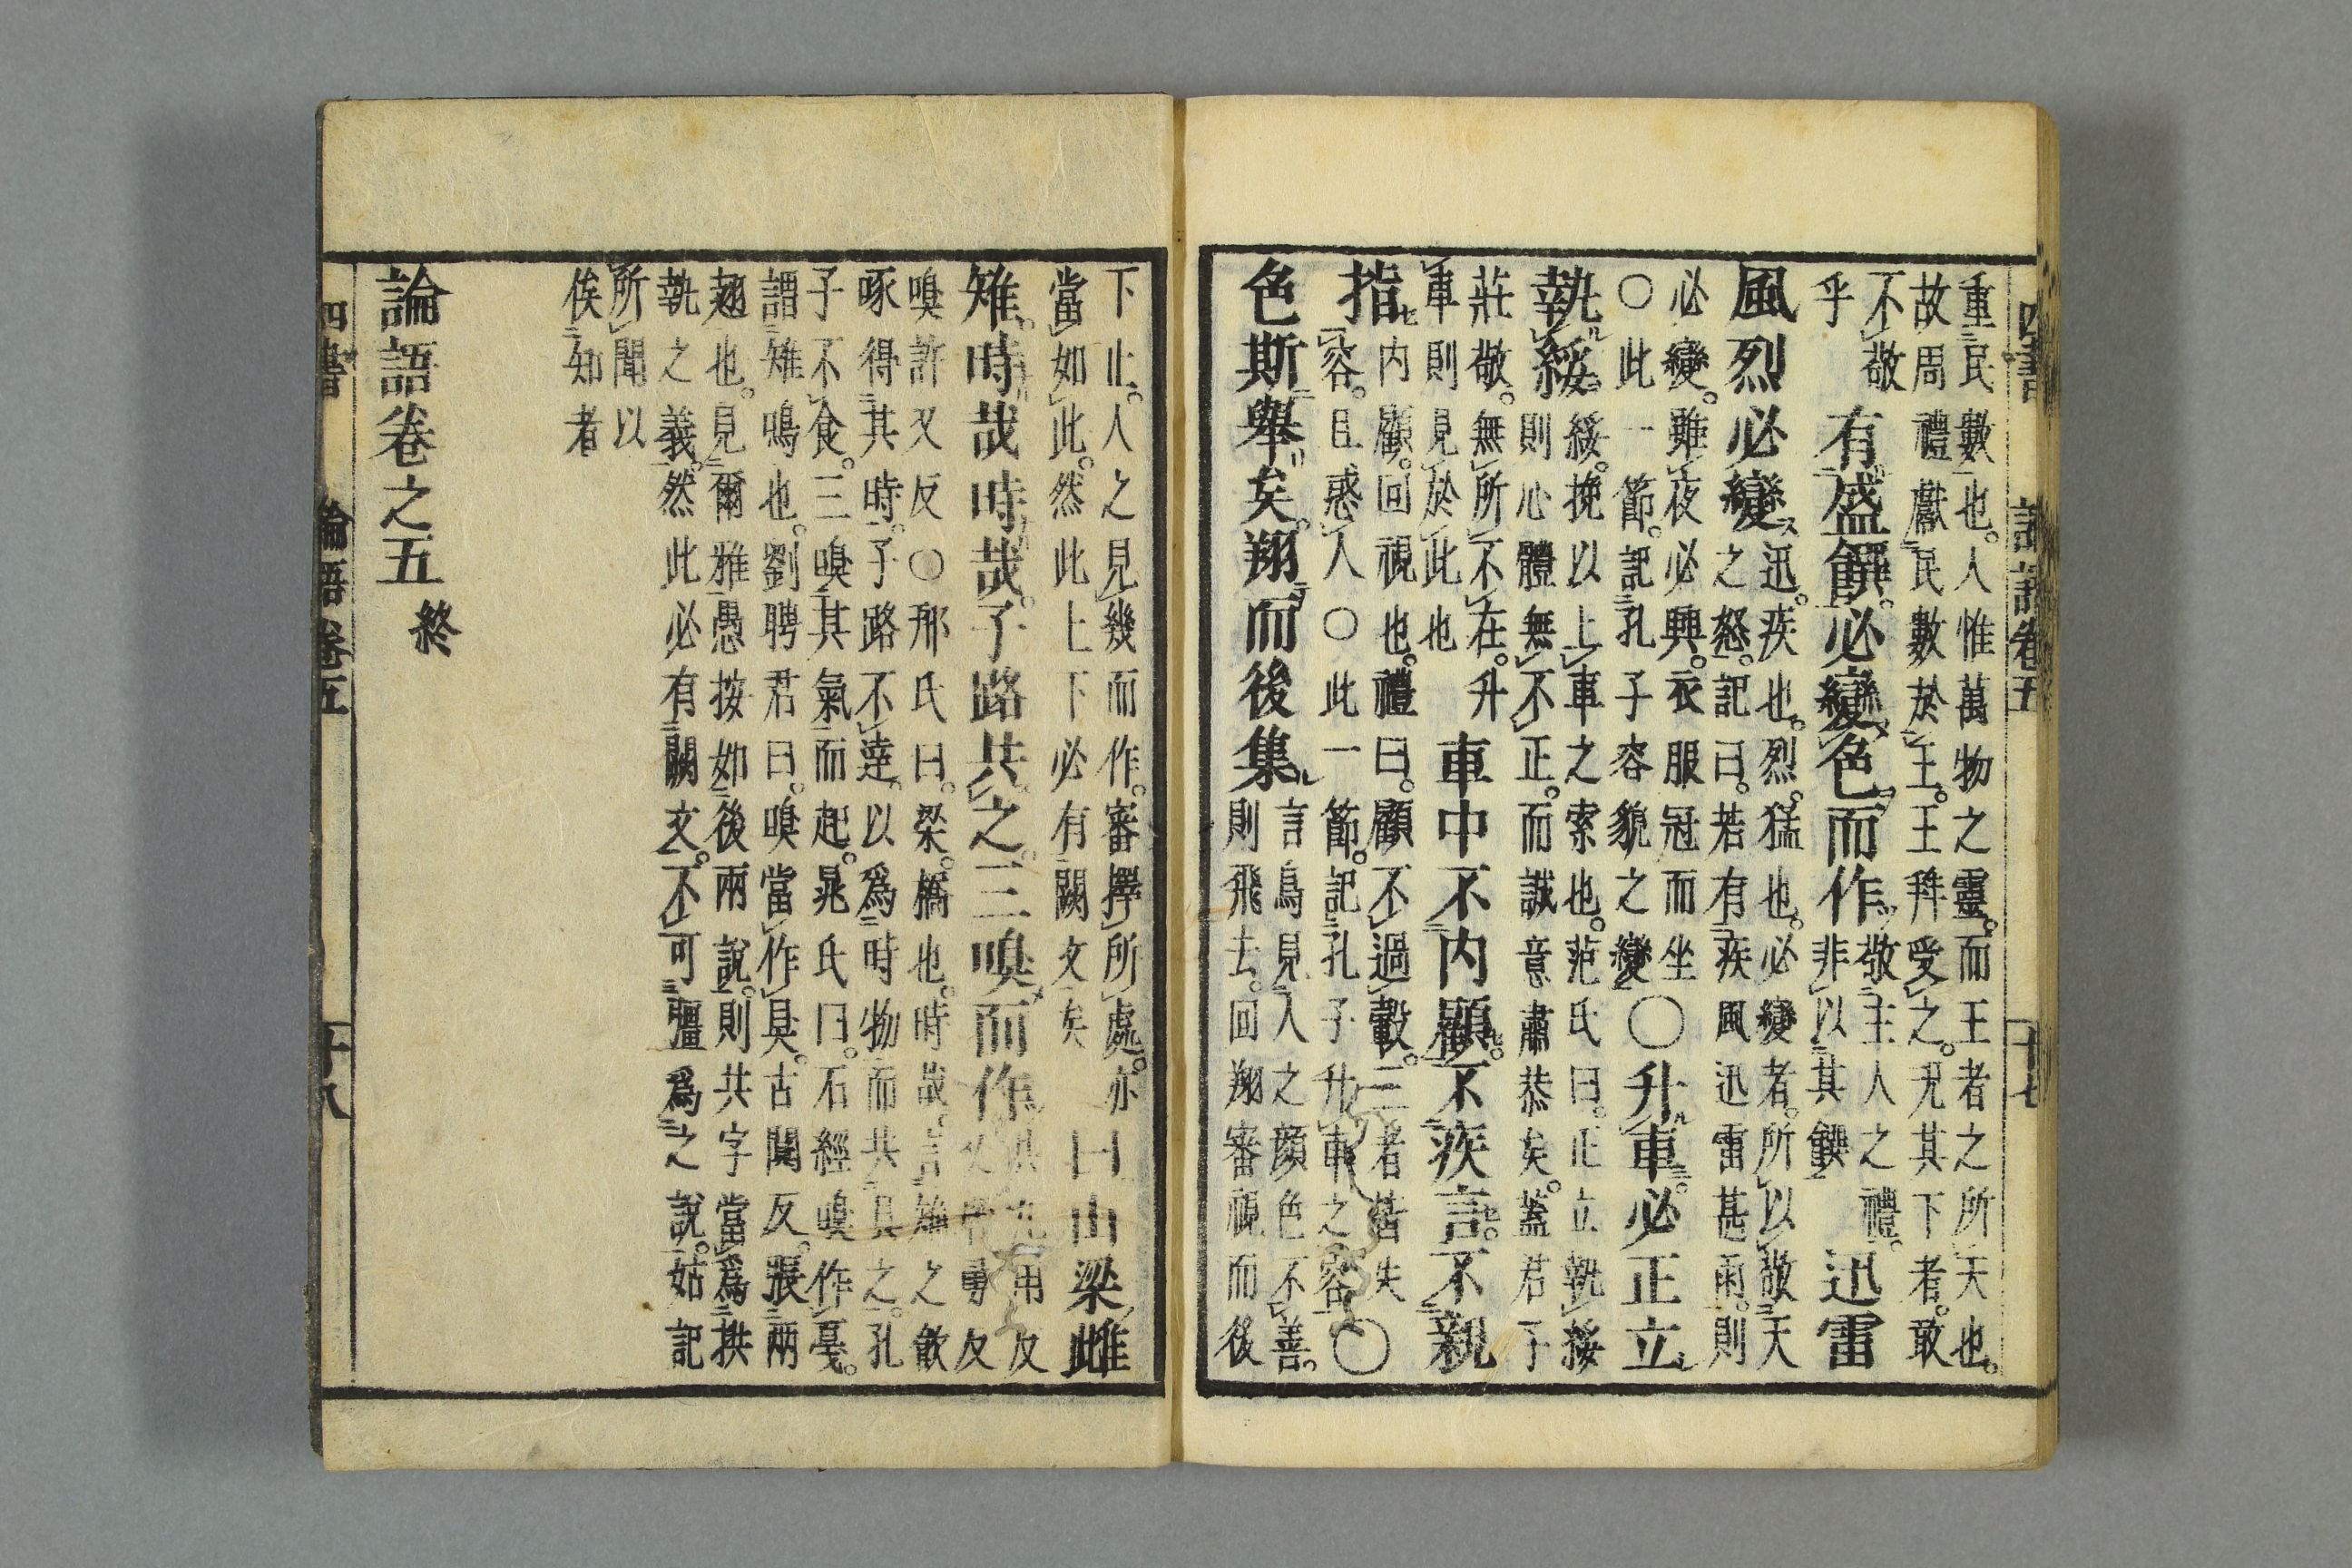 四書 論語卷五 十七
重民數也。人惟萬物之靈。而王者之所天也。
故周禮獻民數於王。王拜受之。況其下者。敢
不敬
乎
有盛饌。必變色而作
敬主人之禮。
非以其饌
迅雷
風烈必變
迅。疾也。烈。猛也。必變者。所以敬天
之怒。記曰。若有疾風迅雷甚雨。則
必變。雖夜必興。衣服冠而坐
○此一節。記孔子容貌之變
○升車。必正立
執綏。
綏。挽以上車之索也。范氏曰。正立執綏
則心體無不正。而誠意肅恭矣。蓋君子
莊敬。無所不在。升
車則見於此也
車中不內顧。不疾言。不親
指
內顧。回視也。禮曰。顧不過轂。三者皆失
容。且惑人○此一節。記孔子升車之容
○
色斯舉矣。翔而後集
言鳥見人之顏色不善。
則飛去。回翔審視而後
下止。人之見幾而作。審擇所處。亦
當如此。然此上下必有闕文矣
曰山梁雌
雉。時哉時哉。子路共之。三嗅而作
共九用反
又居勇反
嗅許又反○邢氏曰。梁。橋也。時哉。言雉之飲
啄得其時。子路不達。以爲時物而共具之。孔
子不食。三嗅其氣而起。晁氏曰。石經嗅作戞。
謂雉鳴也。劉聘君曰。嗅當作狊。古闃反。張兩
翅也。見爾雅。愚按如後兩說。則共字當爲拱
執之義。然此必有闕文。不可彊爲之說。姑記
所聞以
俟知者
論語卷之五 終
四書 論語卷五 十八